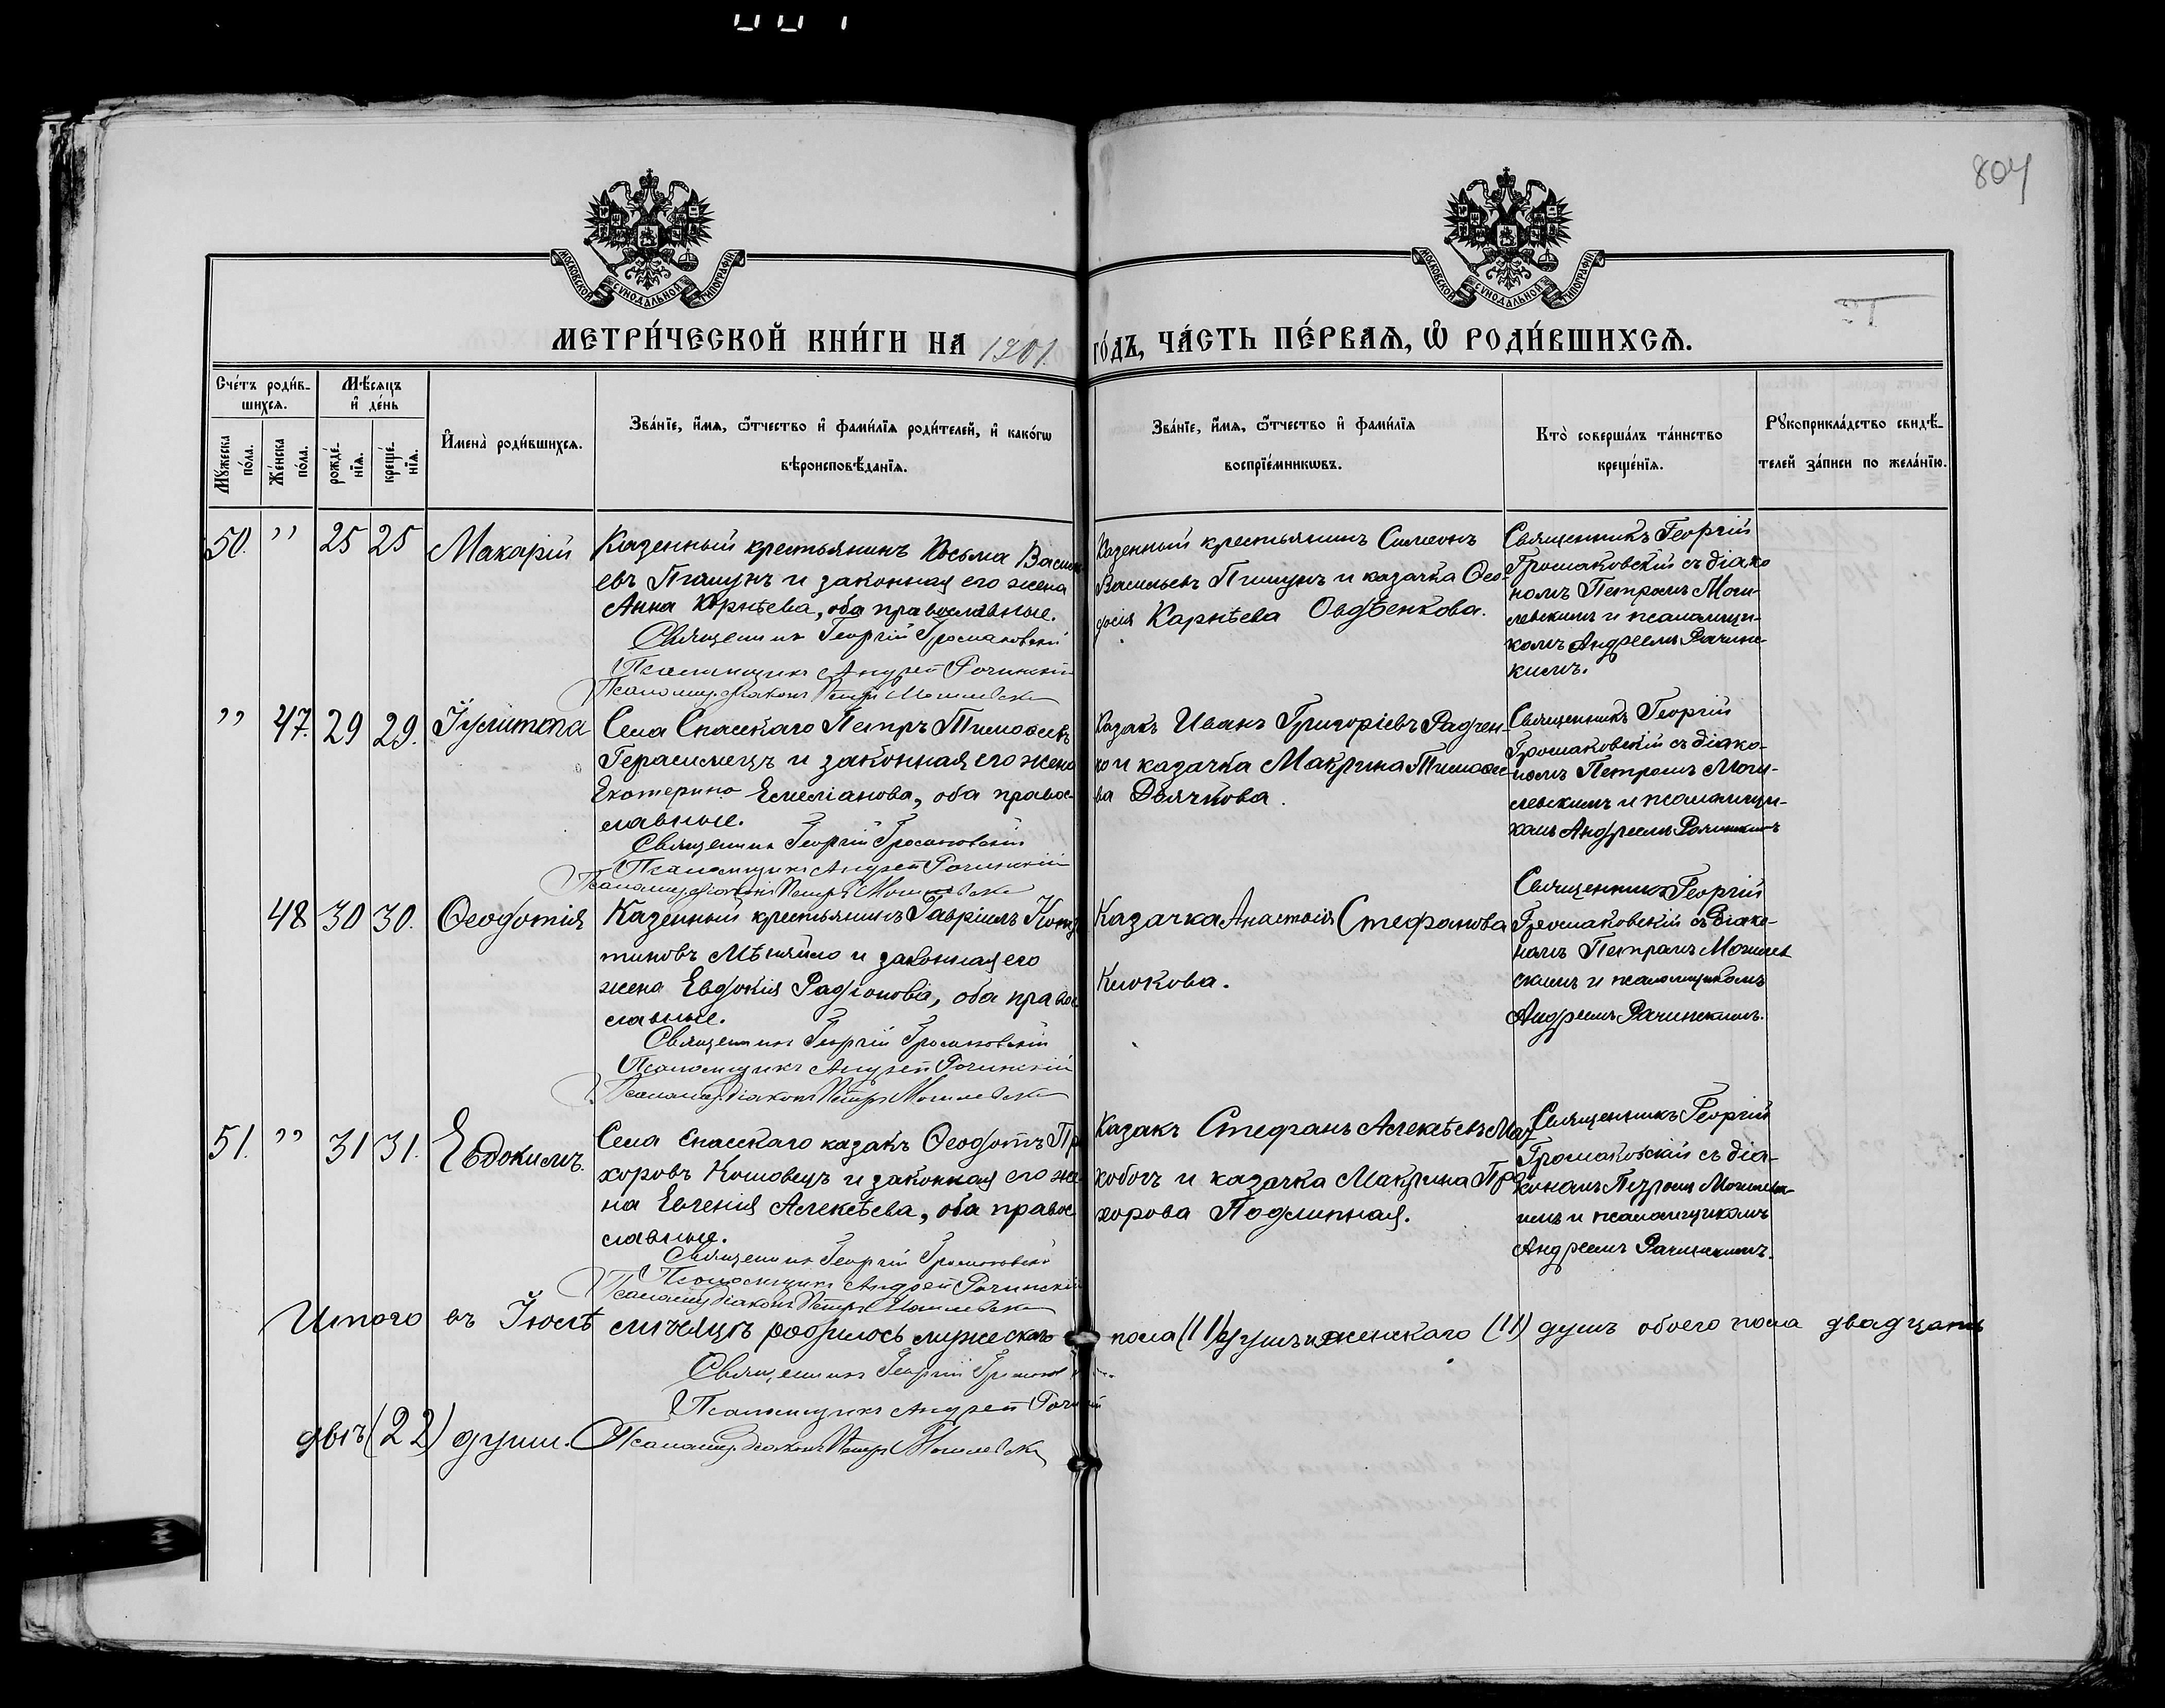 804
МОСКОВСКОЙ СУНОДАЛЬНОЙ ТИПОГРАФІИ
МОСКОВСКОЙ СУНОДАЛЬНОЙ ТИПОГРАФІИ
МЕТРИ́ЧЕСКОЙ КНИ́ГИ НА 1901. ГО́ДЪ, ЧА́СТЬ ПЕ́РВАѦ, Ѽ РОДИ́ВШИХСѦ.
Сче́тъ роди́в-
шихсѧ.
Мѣ́сѧцъ
и҆ де́нь
Мꙋ́жеска
по́ла.
Же́нска
по́ла.
рожде́-
нїѧ.
креще́-
нїѧ.
И҆мена̀ роди́вшихсѧ.
Зва́нїе, и҆́мѧ, ѻ҆́тчество и҆ фами́лїѧ роди́телей, и҆ како́гѡ
вѣроисповѣ́данїѧ.
Зва́нїе, и҆́мѧ, ѻ҆́тчество и҆ фами́лїѧ
воспрїе́мникѡвъ.
Кто̀ соверша́лъ та́инство
креще́нїѧ.
Рꙋкоприкла́дство свидѣ́-
телей за́писи по жела́нїю.
50. " 25 25 Макарій
Казенный крестьянинъ Косьма Василь
евъ Пишунъ и законная его жена
Анна Корнѣева, оба православные.
Священникъ Георгій Громаковскій
Псаломщикъ Андрей Рачинскій
Псаломщ. діаконъ Петръ Могилевскій
Казенный крестьянинъ Симеонъ
Васильевъ Пишунъ и казачка Ѳео-
досія Карнѣева Овдѣенкова.
Священникъ Георгій
Громаковскій съ діако
номъ Петромъ Моги-
левскимъ и псаломщи-
комъ Андреемъ Рачинс-
кимъ.
" 47. 29 29. Іулитта
Села Спасскаго Петръ Тимоѳеевъ
Герасимецъ и законная его жена
Екатерина Емеліанова, оба правос-
лавные.
Священникъ Георгій Громаковскій
Псаломщикъ Андрей Рачинскій
Псаломщ. діаконъ Петръ Могилевскій
Казакъ Иванъ Григоріевъ Радчен-
ко и казачка Макрина Тимоѳее-
ва Дьячкова.
Священникъ Георгій
Громаковскій съ діако-
номъ Петромъ Моги-
левскимъ и псаломщи-
комъ Андреемъ Рачинскимъ
48 30 30. Ѳеодотія
Казенный крестьянинъ Гавріилъ
тиновъ Мѣняйло и законная его
жена Евдокія Радіонова, оба правос
славные.
Священникъ Георгій Громаковскій
Псаломщикъ Андрей Рачинскій
Псаломщ. діаконъ Петръ Могилевскій
Казачка Анастасія Стефанова
Клокова.
Священникъ Георгій
Громаковскій съ діако-
номъ Петромъ Могилев
скимъ и псаломщикомъ
Андреемъ Рачинскимъ.
51. " 31 31. Евдокимъ.
Села Спасскаго казакъ Ѳеодотъ Пр
хоровъ Кошовецъ и законная его же-
на Евгенія Алексѣева, оба правос
славные.
Священникъ Георгій Громаковскій
Псаломщикъ Андрей Рачинскій
Псаломщ. діаконъ Петръ Могилевскій
Казакъ Стефанъ Алексѣевъ
и казачка Макрина Про
хорова Подлипная.
Священникъ Георгій
Громаковскій съ діа-
кономъ Петромъ Могилевс-
имъ и псаломщикомъ
Андреемъ Рачинскимъ.
Итого въ Іюлѣ мѣсяцѣ родилось мужескаго пола (11) душъ и женскаго (11) душъ обоего пола двадцать
Священникъ Георгій Громаковскій
Псаломщикъ Андрей Рачинскій
двѣ (22) души. Псаломщ. діаконъ Петръ Могилевскій